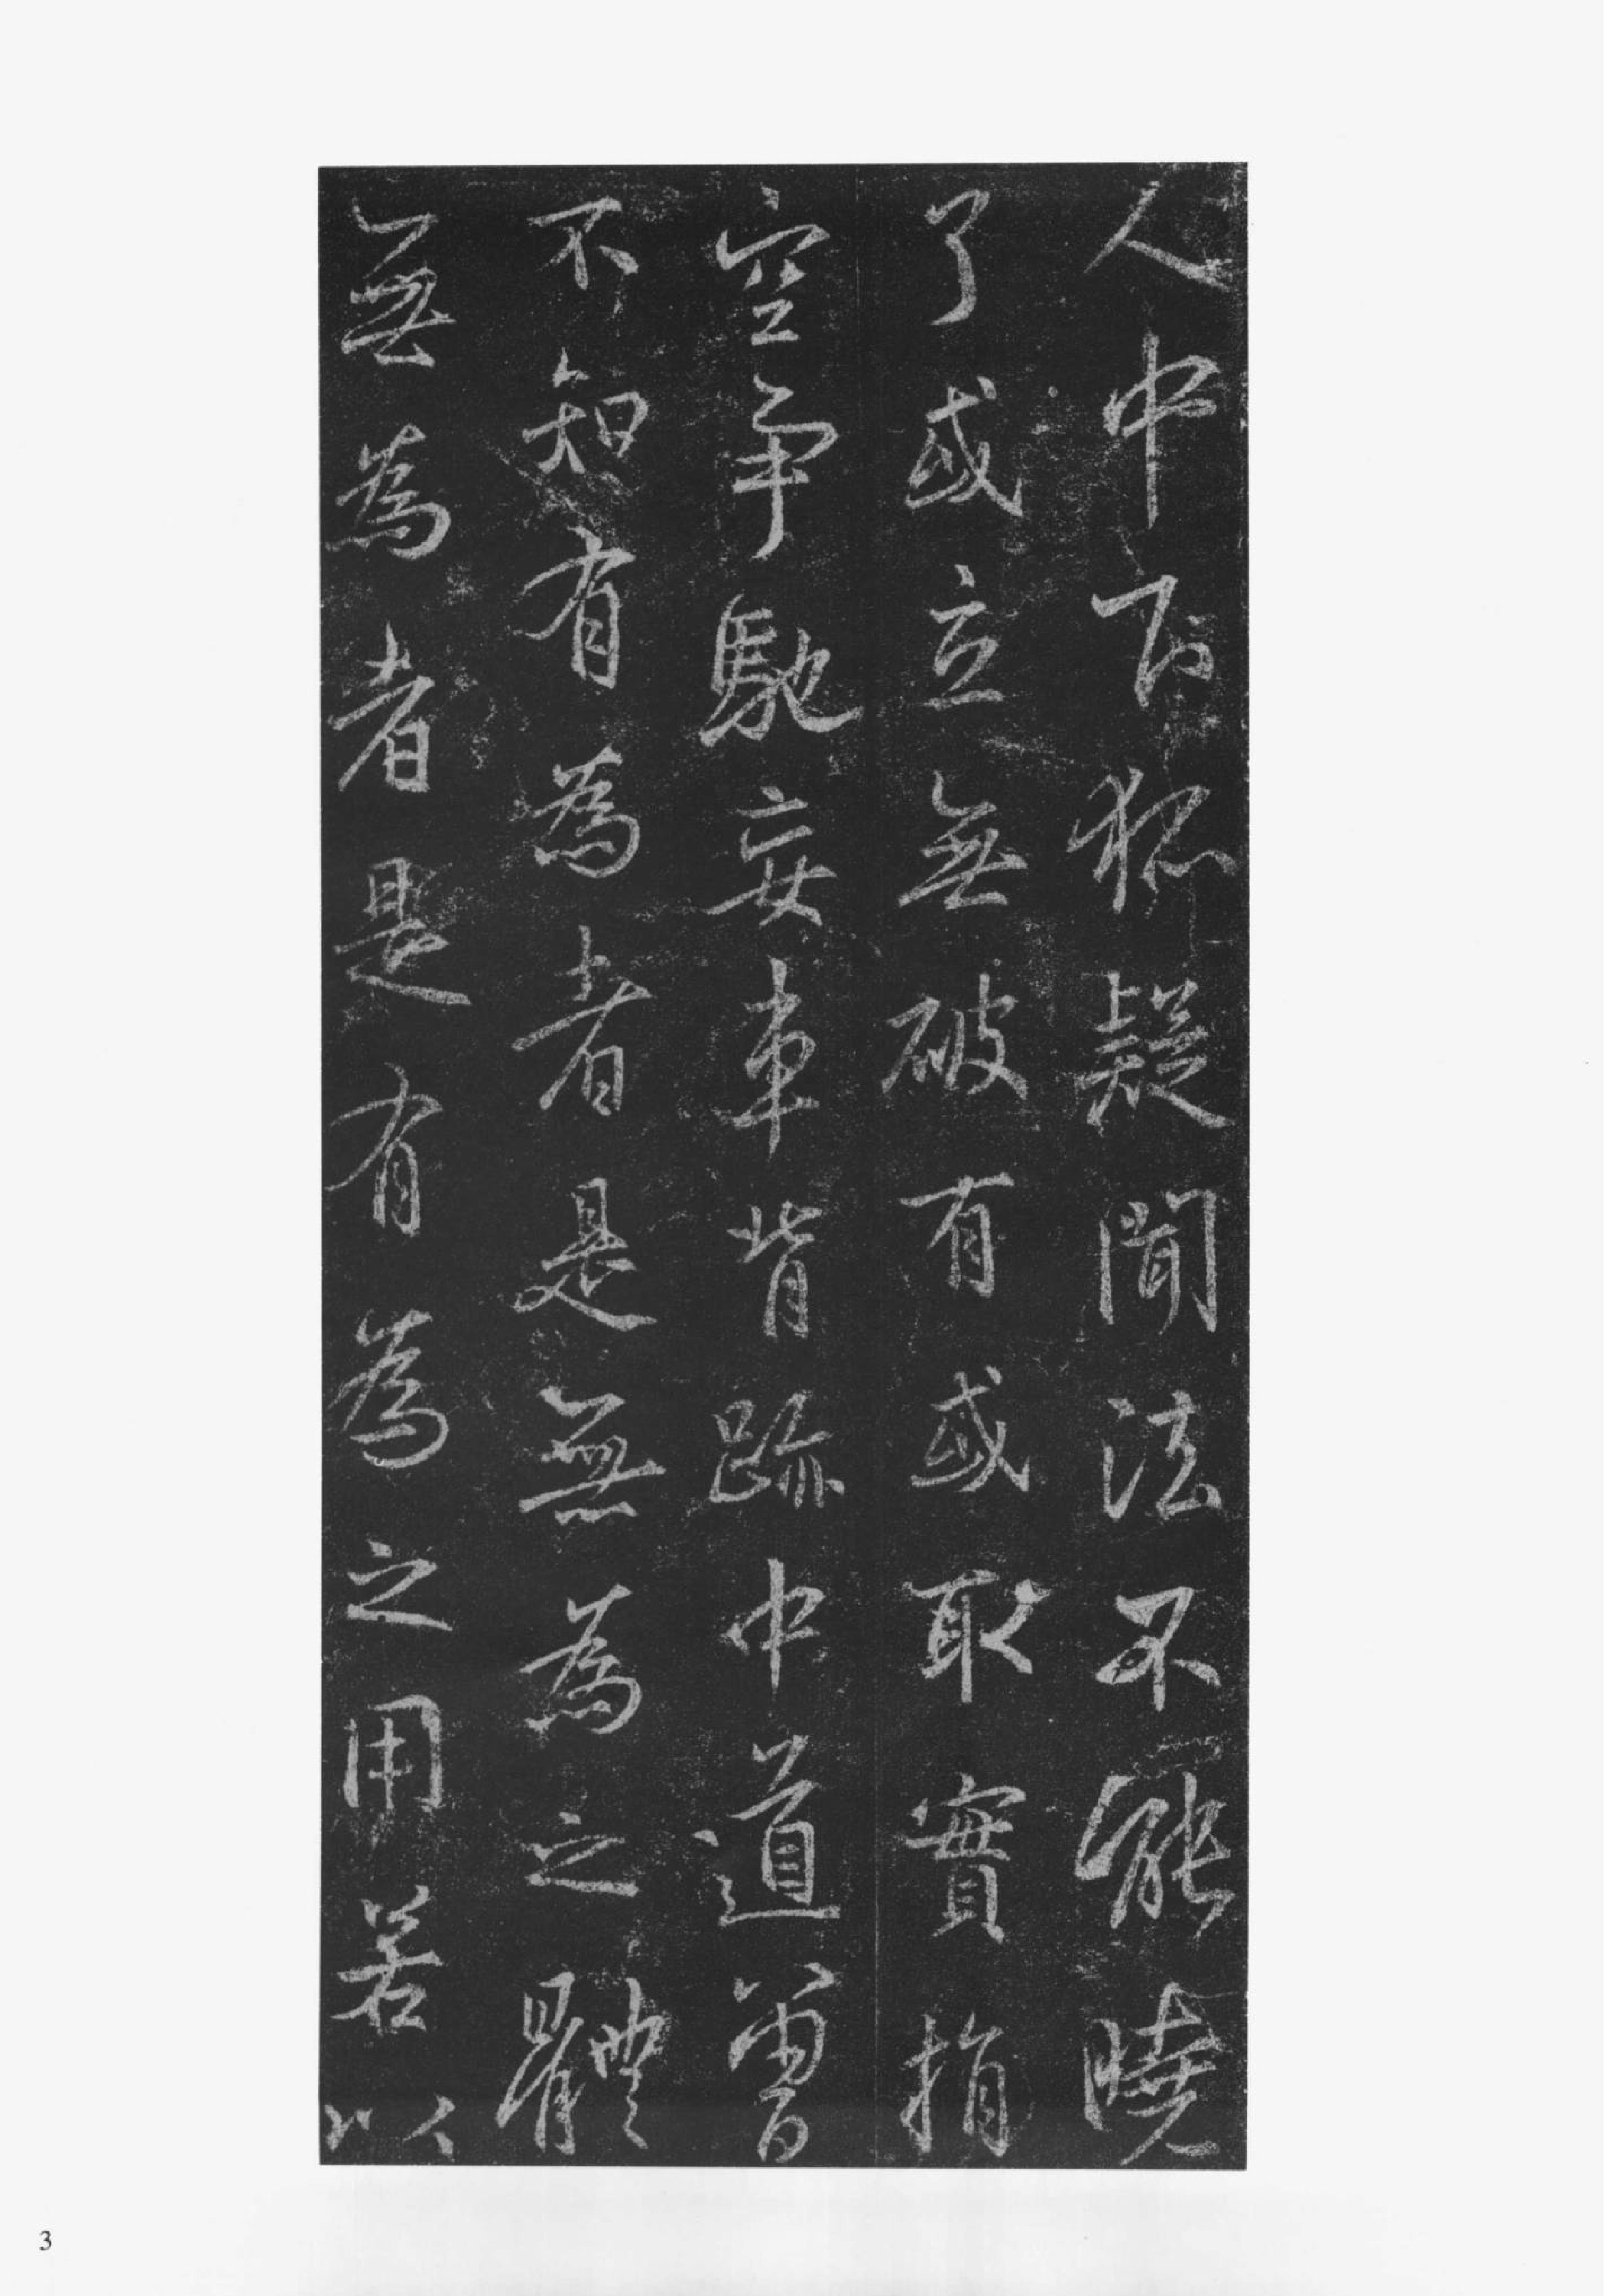 人中下狐疑聞法不能曉
了或立無破有或取實指
空争馳妄車背跡中道曾
不知有為者是無為之體
無為者是有為之用若以
3